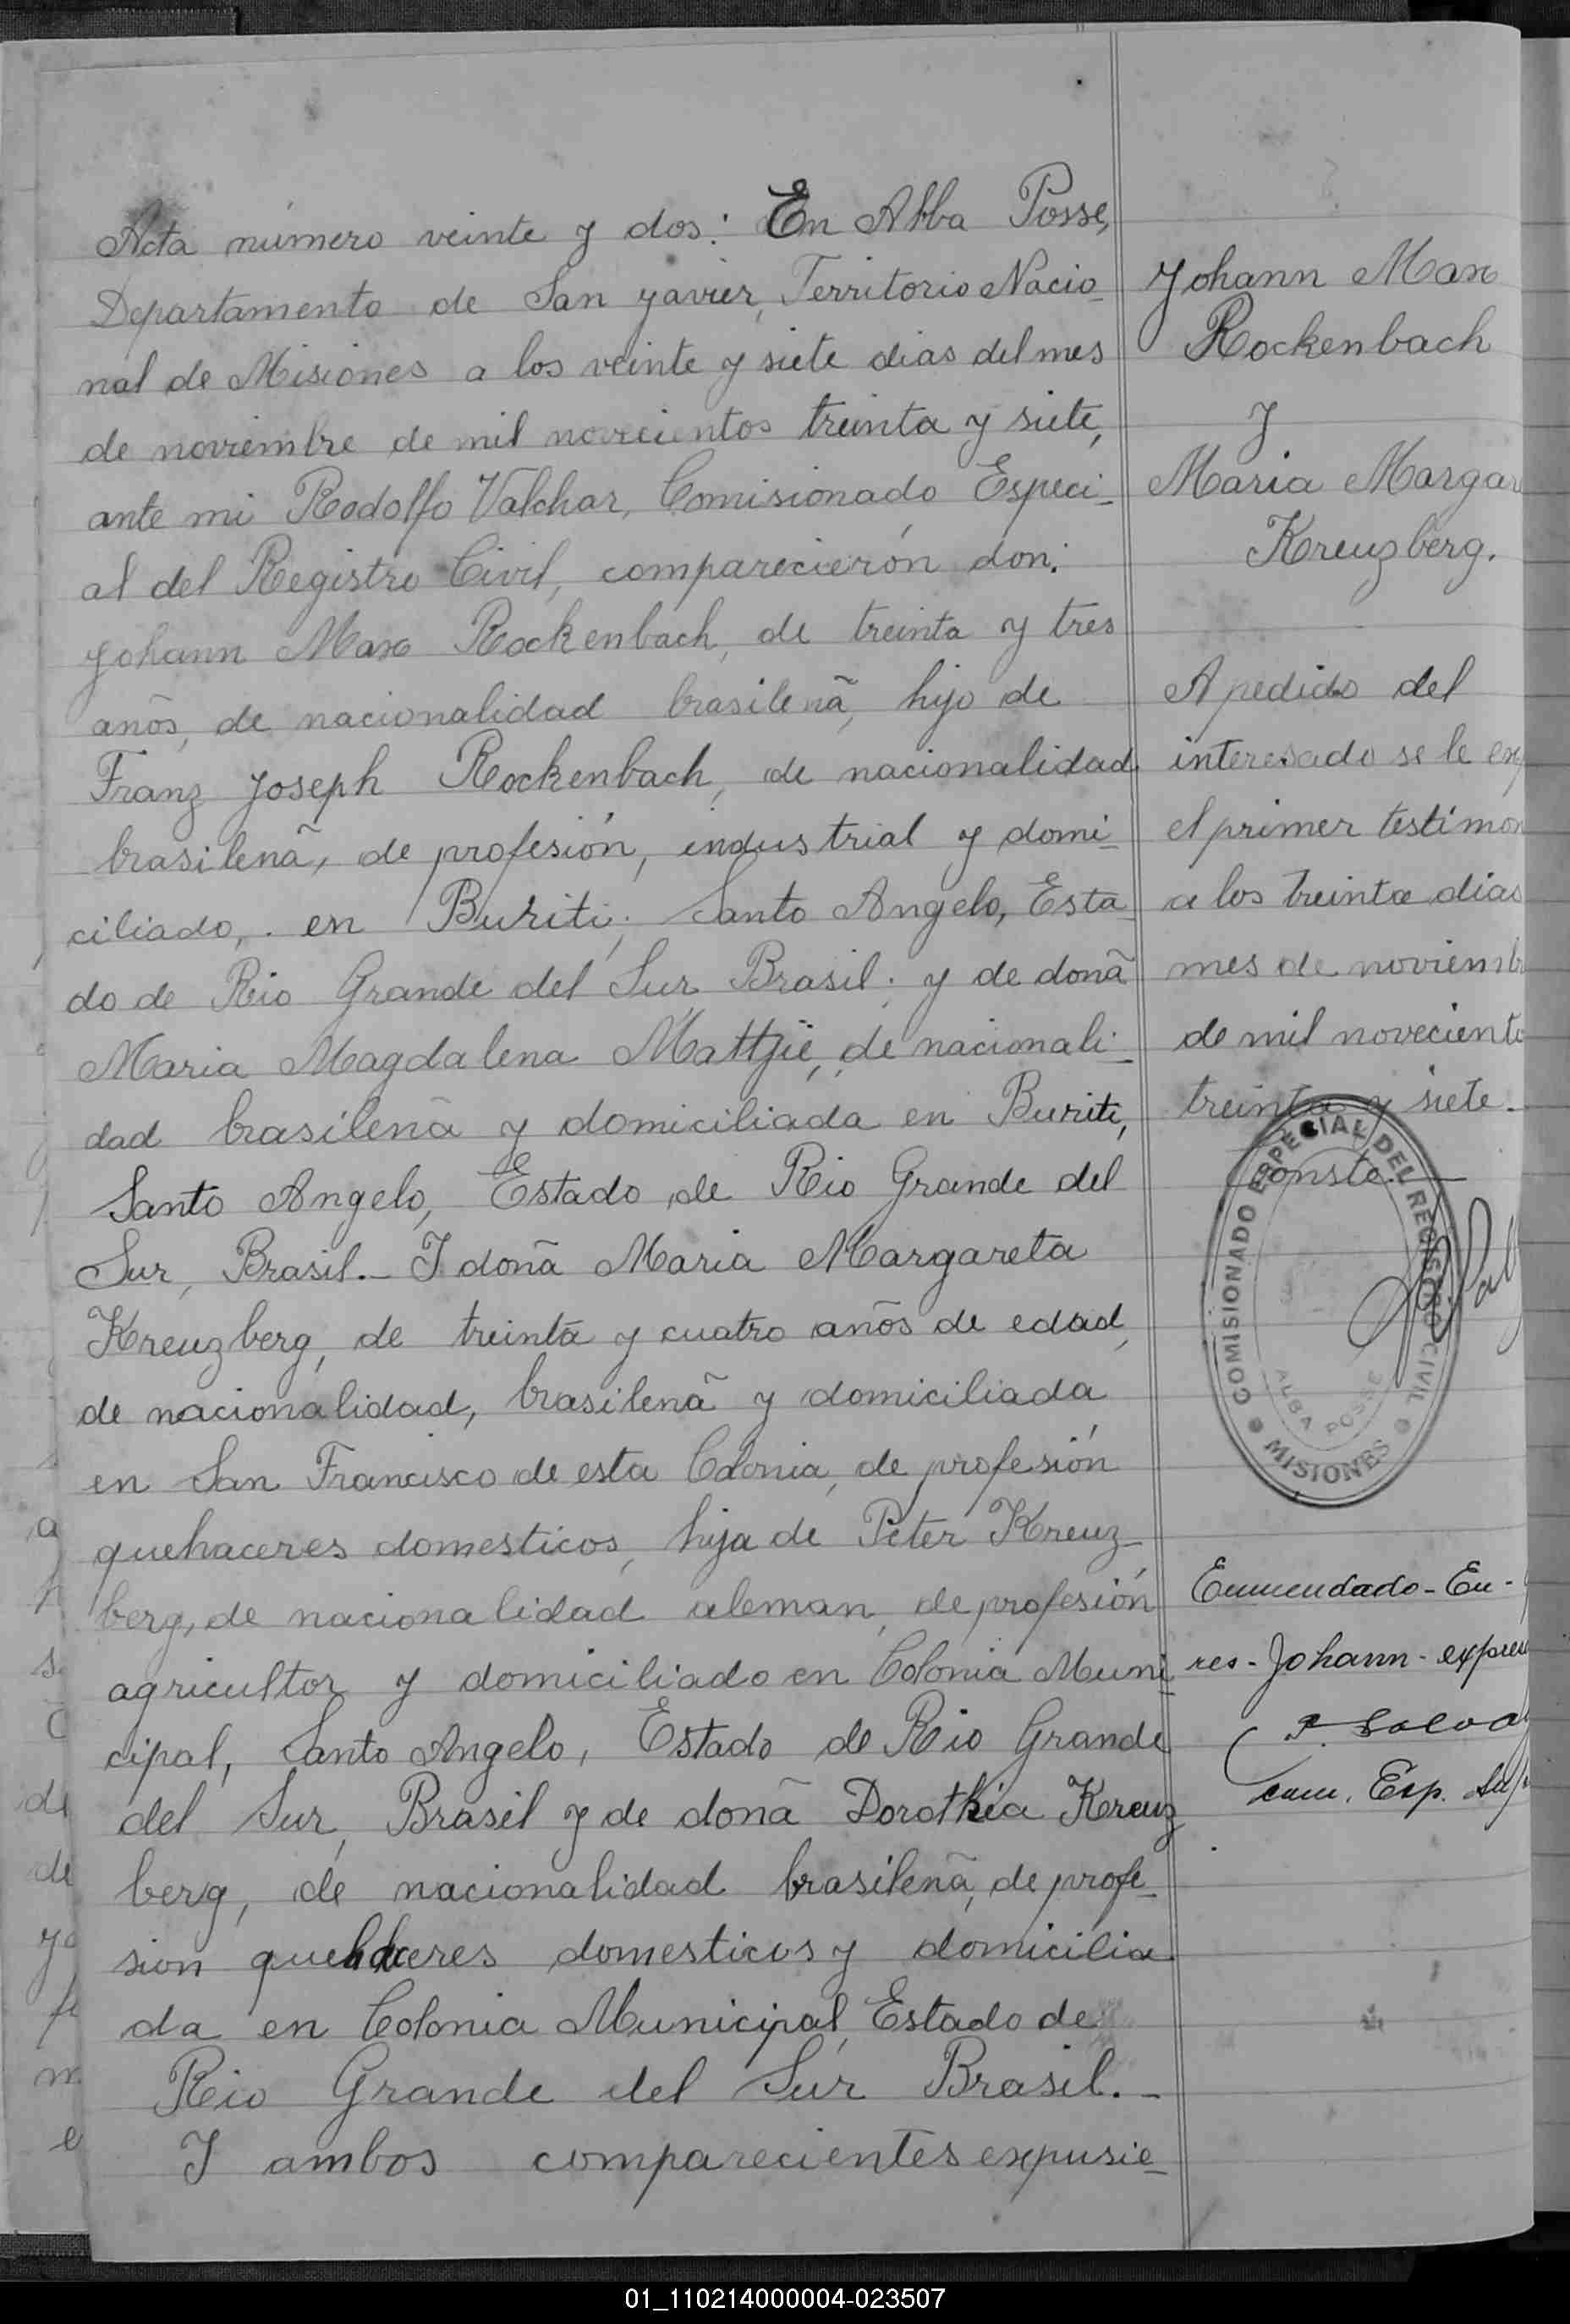 Acta número veinte y dos: En Alba Posse,
Departamento de San Javier, Territorio Nacio-
nal de Misiones a los veinte y siete dias del mes
de noviembre de mil novecientos treinta y siete,
ante mi Rodolfo Valchar, Comisionado Especi-
al del Registro Civil, comparecierón don:
Johann Max Rockenbach, de treinta y tres
anõs, de nacionalidad brasilenã, hijo de
Franz Joseph Rockenbach, de nacionalidad
brasilenã, de profesión, industrial y domi-
ciliado, en Buriti, Santo Angelo, Esta-
do de Rio Grande del Sur, Brasil; y de donã
Maria Magdalena Mattjie, de nacionali-
dad brasilenã y domiciliada en Buriti,
Santo Angelo, Estado de Rio Grande del
Sur, Brasil.- I donã Maria Margareta
Kreuzberg, de treinta y cuatro anõs de edad,
de nacionalidad, brasilenã y domiciliada
en San Francisco de esta Colonia, de profesión
quehaceres domesticos, hija de Peter Kreuz-
berg, de nacionalidad aleman, de profesión
agricultor y domiciliado en Colonia Muni-
cipal, Santo Angelo, Estado de Rio Grande
del Sur, Brasil y de donã Dorothea Kreuz
berg, de nacionalidad brasilenã, de profe-
sion quehaceres domesticos y domicilia-
da en Colonia Municipal, Estado de
Rio Grande del Sur Brasil.-
I ambos comparecientes expusie-
Johann Max
Rockenbach
y
Maria Margar
Kreuzberg.
A pedido del
interesado se le exp
el primer testimon
a los treinta dias
mes de noviemb
de mil noveciento
treinta y siete.-
Conste.-
COMISIONADO ESPECIAL DEL REGISTRO CIVIL
ALBA POSSE
MISIONES
Enmendado - En -
res - Johann - expres
Com. Esp.
01_110214000004-023507